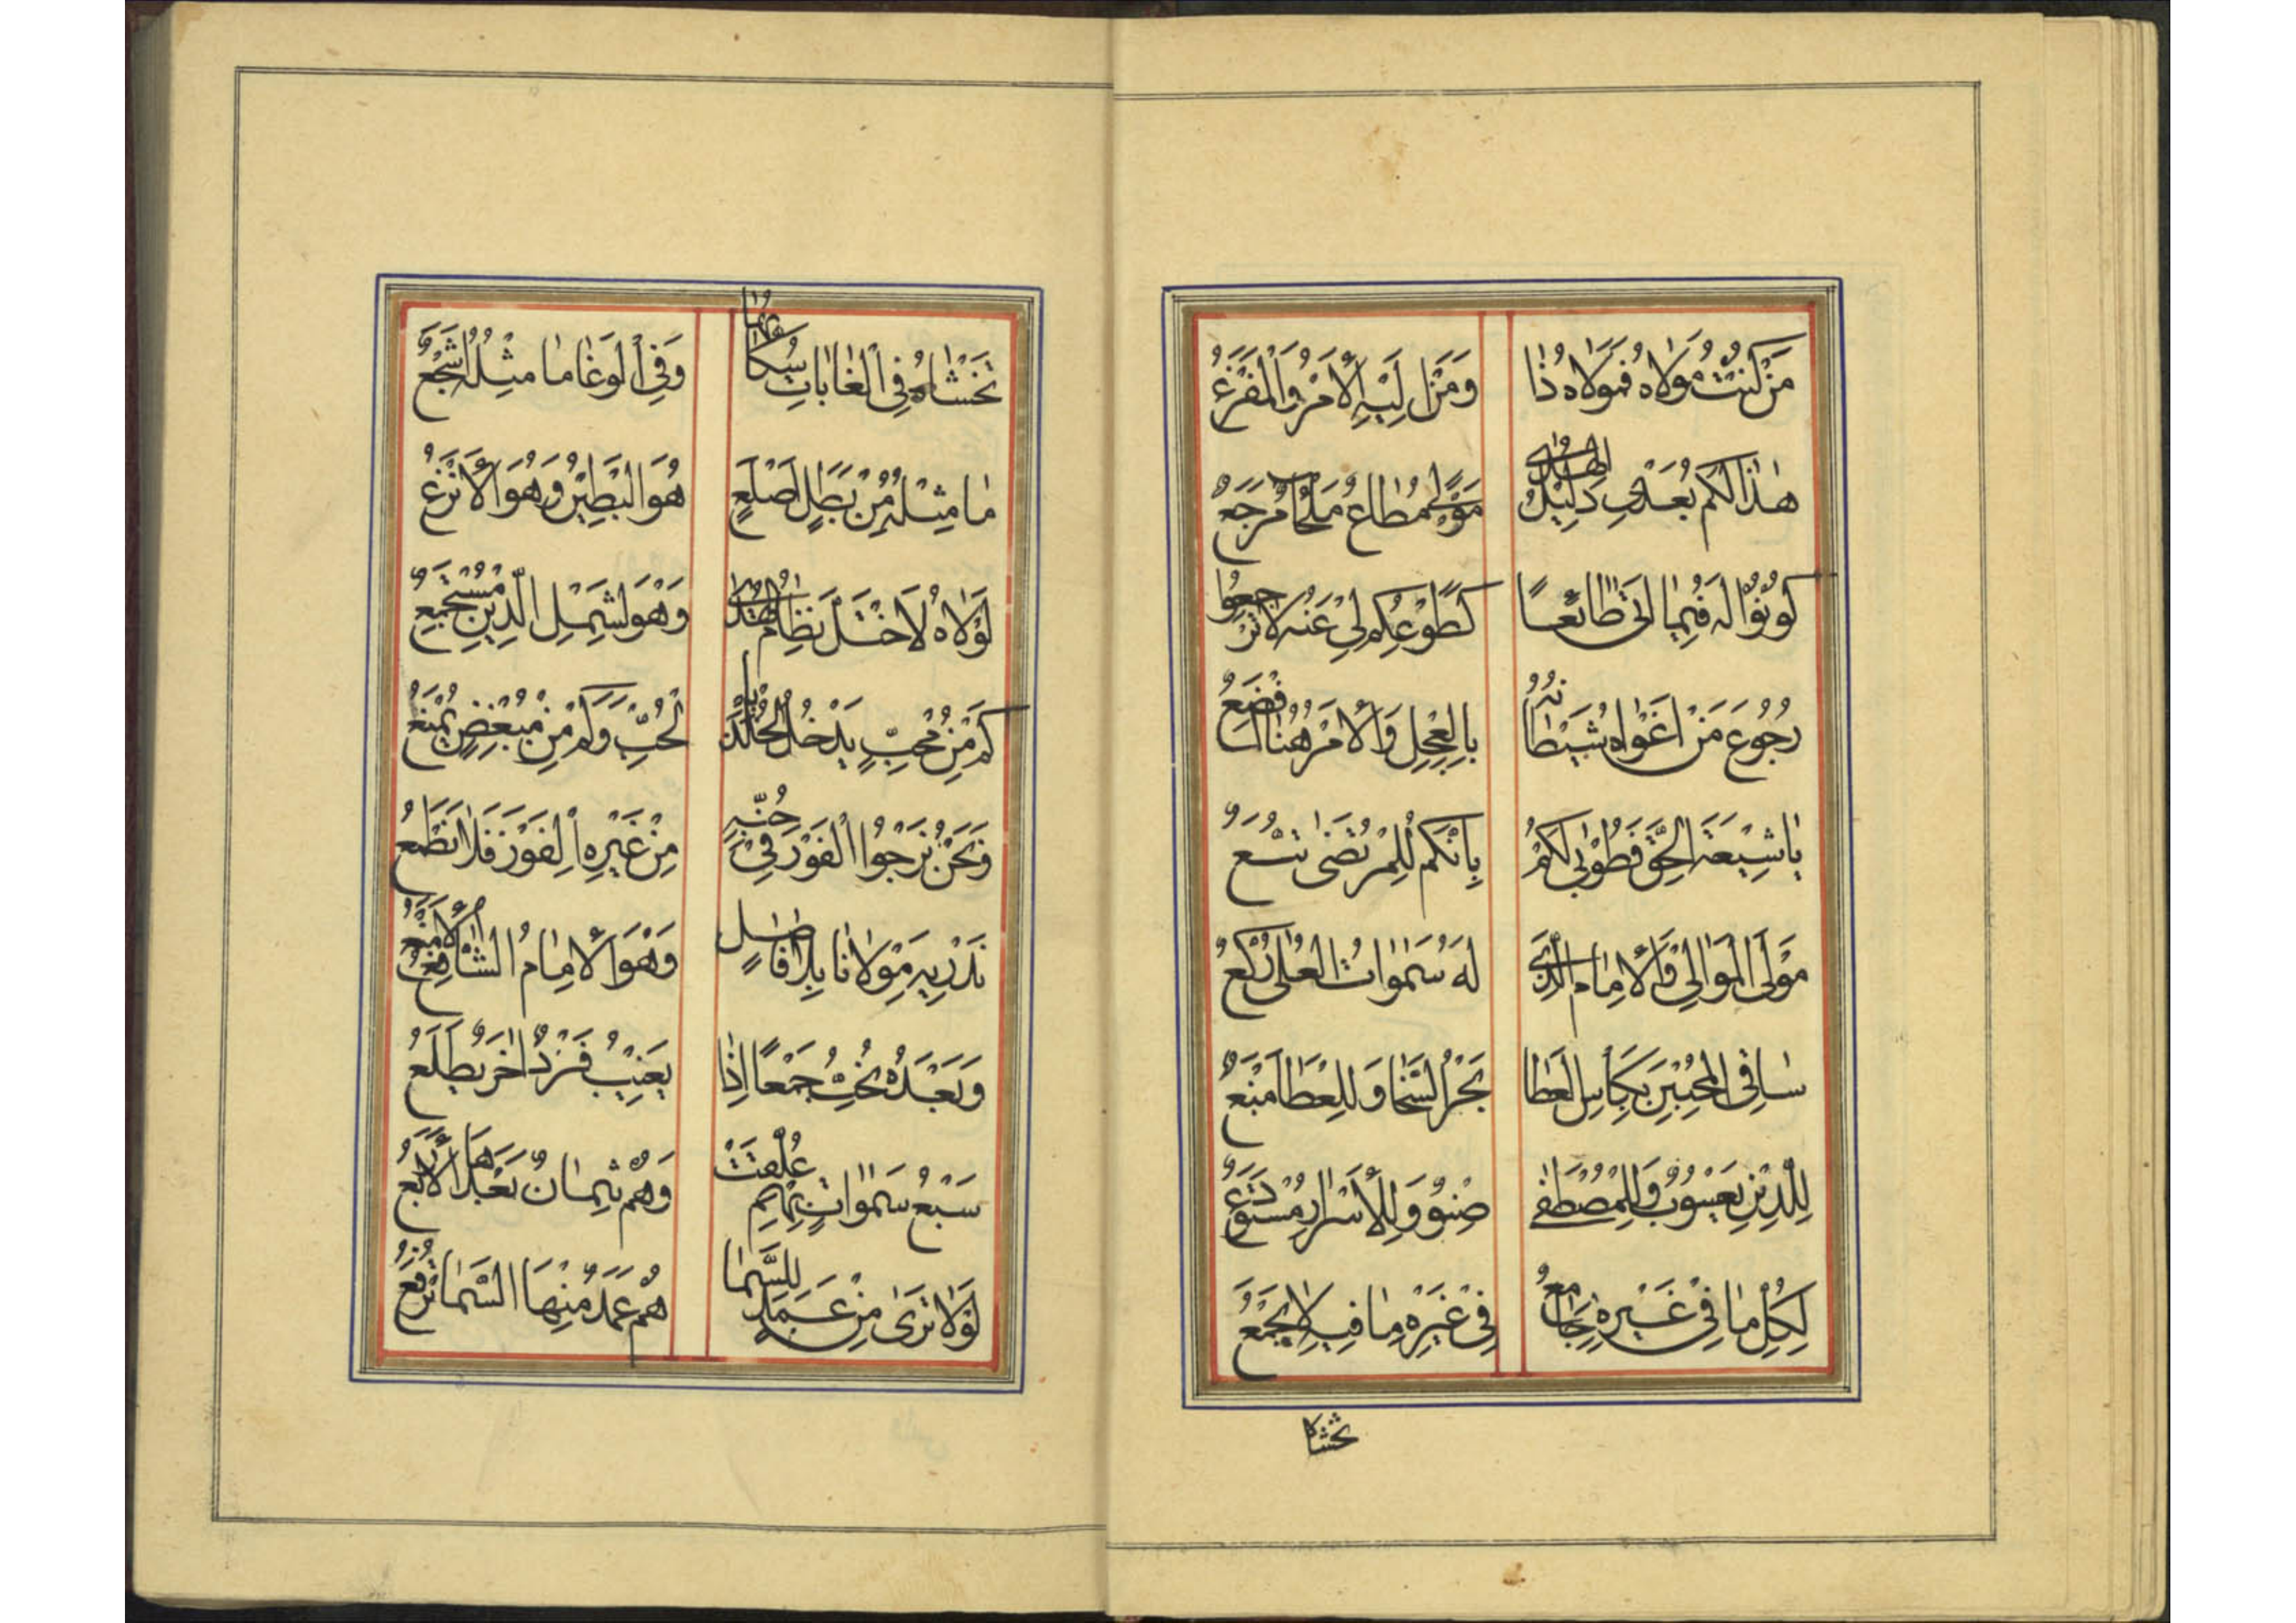 مَنْ كُنْتُ مَوْلَاهُ فَمَوْلَاهُ ذَا وَمَنْ اِلَيْهِ الْأَمْرُ وَالْمَفْزَعُ
هٰذَا لَكُمْ بَعْدِي دَلِيْلُ الْهُدٰى مَوْلًى مُطَاعٌ مَلْجَأٌ مَرْجَعٌ
كُوْنُوْا لَهُ فِيمَا اَتٰى طَائِعًا كَطَوْعِكُمْ لِيْ عَنْهُ لَا تَرْجِعُوا
رُجُوْعَ مَنْ اَغْوَاهُ شَيْطَانُهُ بِالْعِجْلِ وَالْأَمْرُ هُنَا اَفْضَعُ
يَا شِيْعَةَ الْحَقِّ فَطُوْبٰى لَكُمْ بِاَنَّكُمْ لِلْمُرْتَضٰى تُتَّبَعُ
مَوْلَى الْمَوَالِيْ وَالْأِمَامِ الَّذِيْ لَهُ سَمٰوَاتُ الْعُلٰى رُكَّعُ
سَاقِى الْمُحِبِّيْنَ بِكَاْسِ الْعَطَا بَحْرُ السَّخَا وَلِلْعَطَا مَنْبَعُ
لِلدِّيْنِ يَعْسُوْبٌ وَلِلْمُصْطَفٰى صِنْوٌ وَلِلْأَسْرَارِ مُسْتَوْدَعُ
لِكُلِّ مَا فِيْ غَيْرِهِ جَامِعٌ فِيْ غَيْرِهِ مَا فِيْهِ لَا يُجْمَعُ
تخشاه
تَخْشَاهُ فِى الْغَابَاتِ سُكَّانُهَا وَفِى الْوَغَا مَا مِثْلُهُ اَشْجَعُ
مَا مِثْلُهُ مِنْ بَطَلٍ اَصْلَعٍ هُوَ الْبَطِيْنُ وَهُوَ الْأَنْزَعُ
لَوْلَاهُ لَاخْتَلَّ نِظَامُ الْهُدٰى وَهْوَ لِشَمْلِ الدِّيْنِ مُسْتَجْمِعُ
كَمْ مِنْ مُحِبٍّ يَدْخُلُ الْخُلْدَ بِالْحُبِّ وَكَمْ مِنْ مُبْغِضٍ يُمْنَعُ
وَنَحْنُ نَرْجُوا الْفَوْزَ فِيْ حُبِّهِ مِنْ غَيْرِهِ الْفَوْزَ فَلَا نَطْمَعُ
نَدْرِيْهِ مَوْلَانَا بِلَا فَاضِلٍ وَهْوَ الْأِمَامُ الشَّافِعُ الْأَمْنَعُ
وَبَعْدَهُ نُحِبُّ جَمْعًا اِذَا يَغِيْبُ فَرْدٌ اٰخَرُ يَطْلَعُ
سَبْعُ سَمٰوَاتٍ بِهِمْ عُلِّقَتْ وَهُمْ ثِمَانٌ بَعْدَهَا الْأَرْبَعُ
لَوْلَا نَرٰى مِنْ عَمَدٍ لِلسَّمَا هُمْ عَمَدٌ مِنْهَا السَّمَا تُرْفَعُ